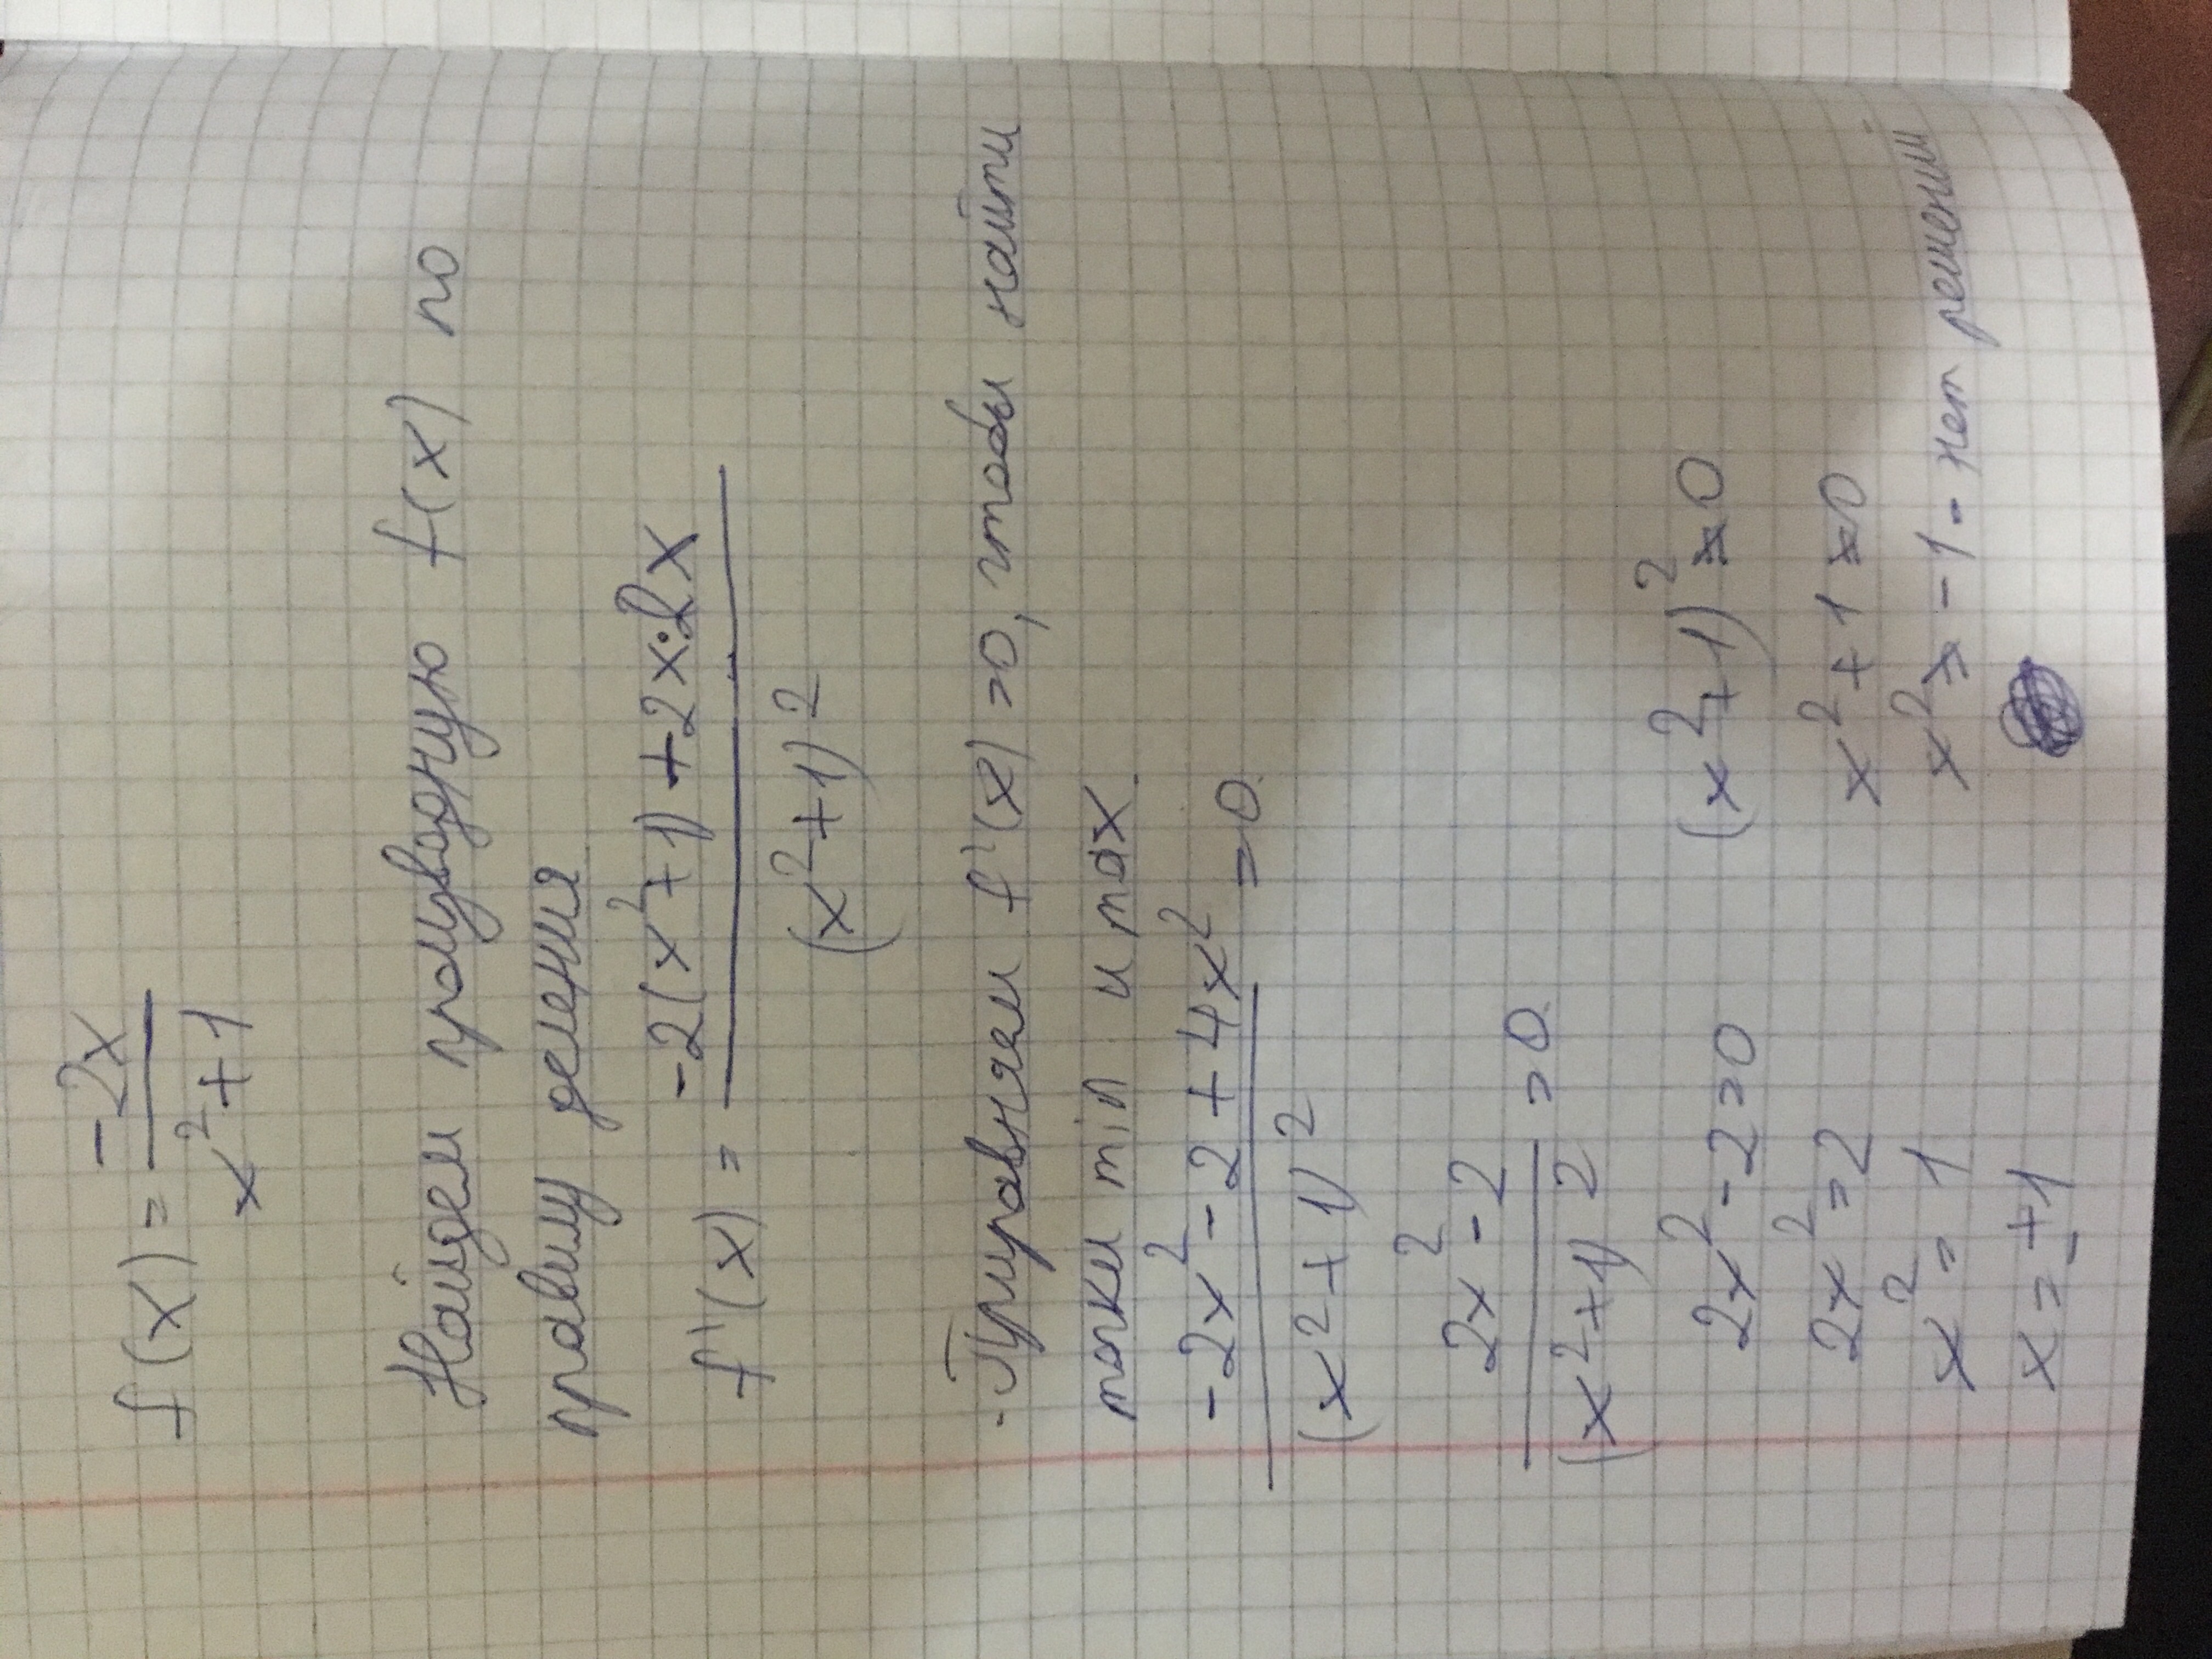 f(x) = -2x / x² + 1
Найдем производную f(x) по
правилу деления
f'(x) = -2(x² + 1) + 2x·2x / (x² + 1)²
- Приравняем f'(x) = 0, чтобы найти
точки min и max.
-2x² - 2 + 4x² / (x² + 1)² = 0.
2x² - 2 / (x² + 1)² = 0.
2x² - 2 = 0 (x² + 1)² ≠ 0
2x² = 2 x² + 1 ≠ 0
x² = 1 x² ≠ -1 - нет решений
x = ±1